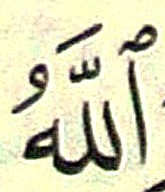 ٱللَّهُ